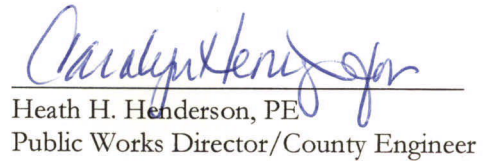 Carolyn Henry for
Heath H. Henderson, PE
Public Works Director/County Engineer